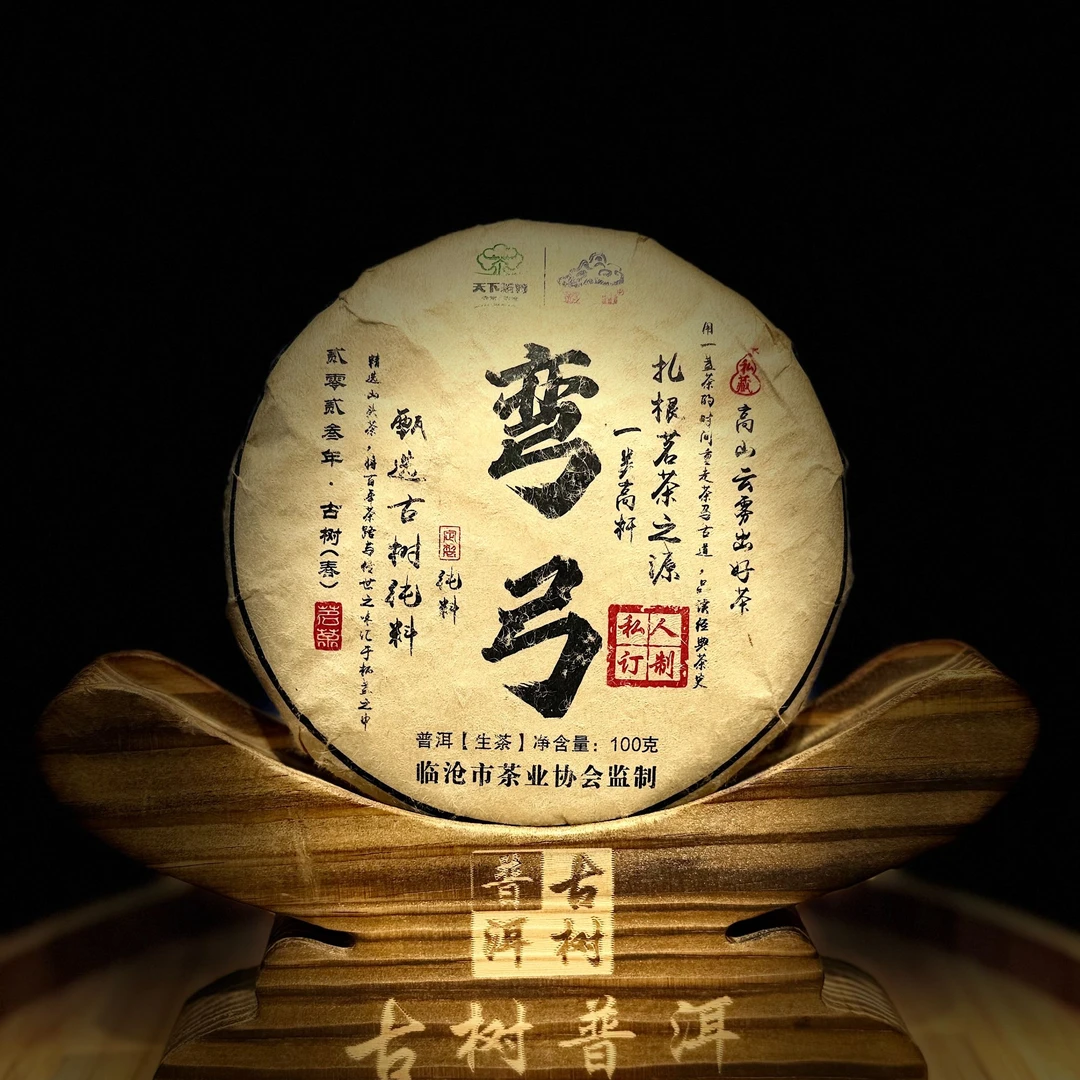 天下
私藏
高山云雾出好茶
用一盏茶的时间重走茶马古道，品读经典茶史
扎根茗茶之源
一芽高杆
私人订制
弯弓
纯料
甄选古树纯料
精选山头茶，将百年茶路与传世之味汇于杯盏之中
贰零贰叁年·古树（春）
普洱【生茶】净含量：100克
临沧市茶业协会监制
古树
普洱
古树普洱